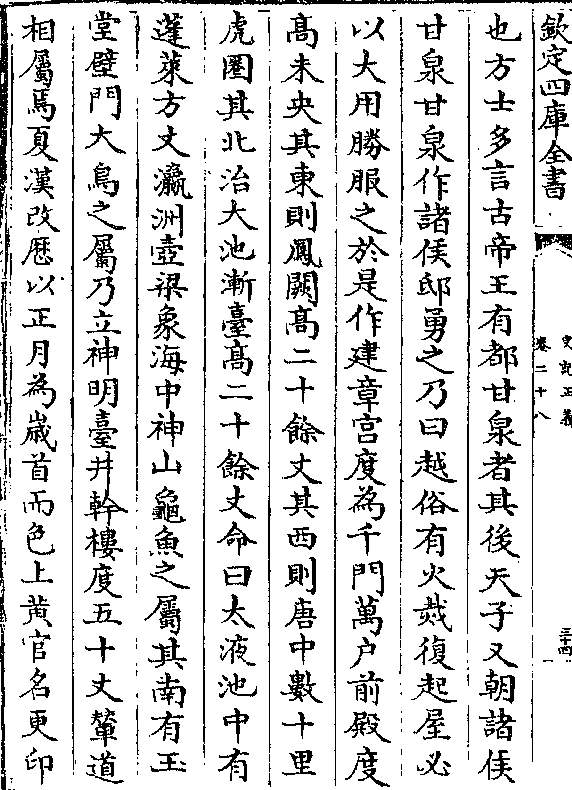 欽定四庫全書
史記正義
卷二十八
三十四
也方士多言古帝王有都甘泉者其後天子又朝諸侯
甘泉甘泉作諸侯邸勇之乃曰越俗有火烖復起屋必
以大用勝服之於是作建章宫度為千門萬户前殿度
髙未央其東則鳳闕髙二十餘丈其西則唐中數十里
虎圈其北治大池漸臺髙二十餘丈命曰太液池中有
蓬萊方丈瀛洲壺梁象海中神山龜魚之屬其南有玉
堂壁門大鳥之屬乃立神明臺井幹樓度五十丈輦道
相屬焉夏漢改厯以正月為嵗首而色上黄官名更印